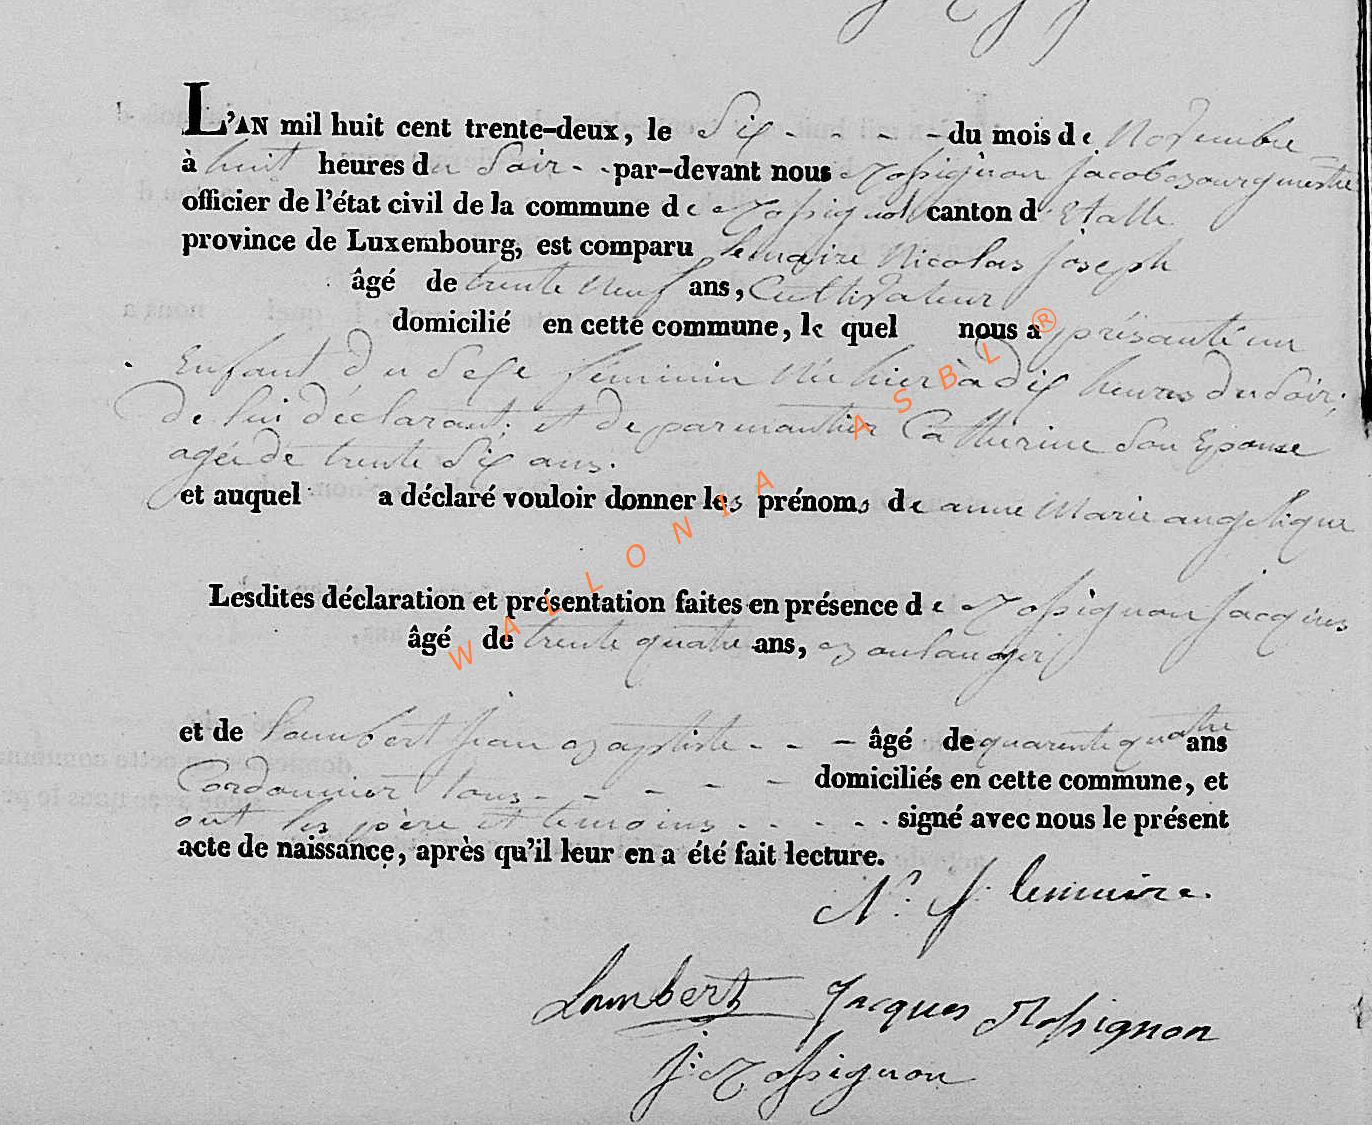 L'AN mil huit cent trente-deux, le Six - - - - du mois de Novembre
à huit heures du Soir - - par-devant nous Rossignon Jacob Bourgmestre
officier de l'état civil de la commune de Rossignol canton d'Etalle
province de Luxembourg, est comparu lemaire Nicolas Joseph
âgé de trente Neuf ans, Cultivateur
domicilié en cette commune, le quel nous a présanté un
Enfant du Sexe féminin Née hier à dix heures du Soir;
De lui déclarant; et de parmantier Catherine Son Epouse
agée de trente Six ans.
et auquel a déclaré vouloir donner les prénoms de anne Marie angelique
Lesdites déclaration et présentation faites en présence de Rossignon Jacques
âgé de trente quatre ans, Boulanger
et de Lambert Jean Baptiste - - - âgé de quarente quatre ans
Cordonnier tous - - - - - domiciliés en cette commune, et
ont les père et temoins - - - - - signé avec nous le présent
acte de naissance, après qu'il leur en a été fait lecture.
N. J. lemaire.
Lambert Jacques Rossignon
J: Rossignon
WALLONIA ASBL ®